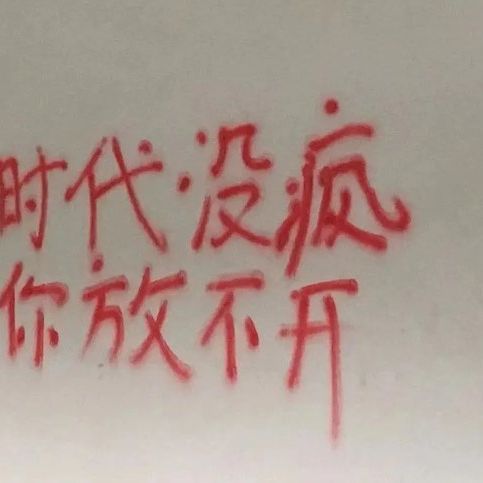 时代没疯
你放不开